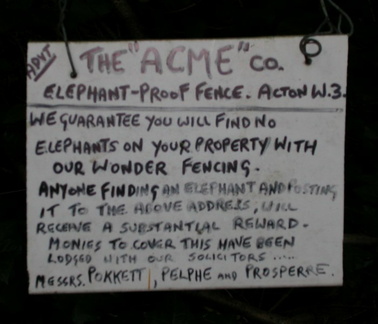 ADVT THE "ACME" CO.
ELEPHANT-PROOF FENCE. ACTON W.3.
WE GUARANTEE YOU WILL FIND NO
ELEPHANTS ON YOUR PROPERTY WITH
OUR WONDER FENCING.
ANYONE FINDING AN ELEPHANT AND POSTING
IT TO THE ABOVE ADDRESS, WILL
RECEIVE A SUBSTANTIAL REWARD.
MONIES TO COVER THIS HAVE BEEN
LODGED WITH OUR SOLICITORS .....
MESSRS. POKKETT, PELPHE AND PROSPERRE.